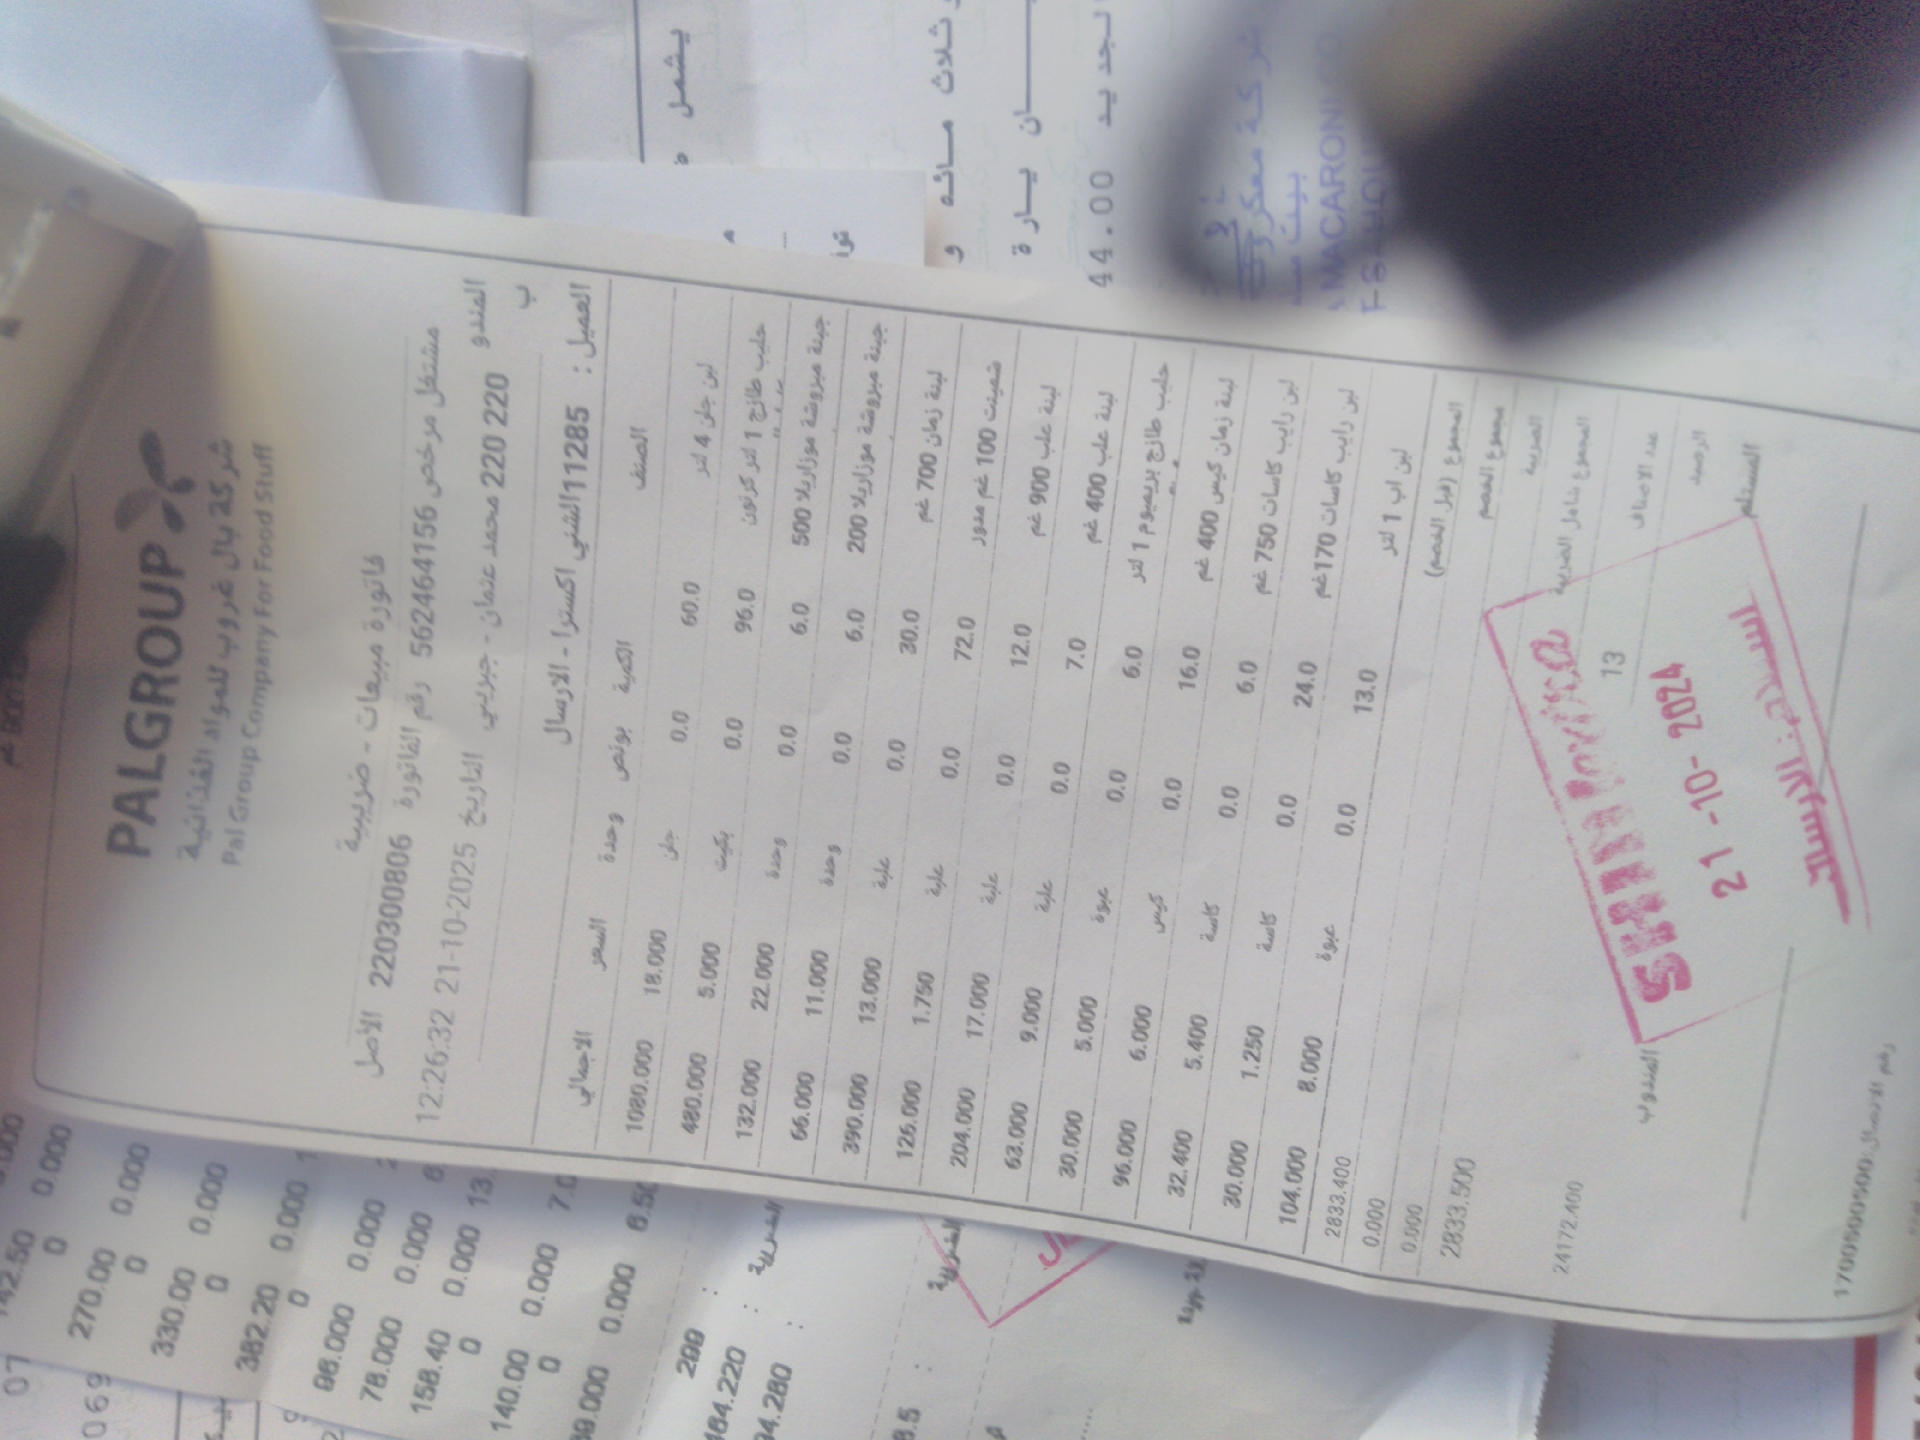 PALGROUP
شركة بال غروب للمواد الغذائية
Pal Group Company For Food Stuff
فاتورة مبيعات - ضريبية
مشتغل مرخص 562464156 رقم الفاتورة 220300806 الأصل
المندوب 220 220 محمد عثمان - جبريني التاريخ 21-10-2025 12:26:32
العميل : 11285 الشني اكسترا - الارسال
الصنف الكمية بونص وحدة السعر الاجمالي
لبن جلن 4 لتر 60.0 0.0 جلن 18.000 1080.000
حليب طازج 1 لتر كرتون 96.0 0.0 بكيت 5.000 480.000
جبنة مبروشة موزاريلا 500 6.0 0.0 وحدة 22.000 132.000
جبنة مبروشة موزاريلا 200 6.0 0.0 وحدة 11.000 66.000
لبنة زمان 700 غم 30.0 0.0 علبة 13.000 390.000
شمينت 100 غم مدور 72.0 0.0 علبة 1.750 126.000
لبنة علب 900 غم 12.0 0.0 علبة 17.000 204.000
لبنة علب 400 غم 7.0 0.0 علبة 9.000 63.000
حليب طازج بريميوم 1 لتر 6.0 0.0 عبوة 5.000 30.000
لبنة زمان كيس 400 غم 16.0 0.0 كيس 6.000 96.000
لبن رايب كاسات 750 غم 6.0 0.0 كاسة 5.400 32.400
لبن رايب كاسات 170غم 24.0 0.0 كاسة 1.250 30.000
لبن اب 1 لتر 13.0 0.0 عبوة 8.000 104.000
المجموع (قبل الخصم) 2833.400
مجموع الخصم 0.000
الضريبة 0.000
المجموع شامل الضريبة 2833.500
عدد الاصناف 13
الرصيد 24172.400
المستلم المندوب
21 -10- 2024
الارسال
رقم الاتصال: 1700500500
يشمل
44.00
شركة معكرو
بيت
MACARONI CO
142.50 0.000
0
270.00 0.000
0
330.00 0.000
0
382.20 0.000
0
96.000 0.000
78.000 0.000
158.40 0.000 13.
0
140.00 0.000 7.0
0
0.000 6.50
299 :
: الضريبة
: الضريبة